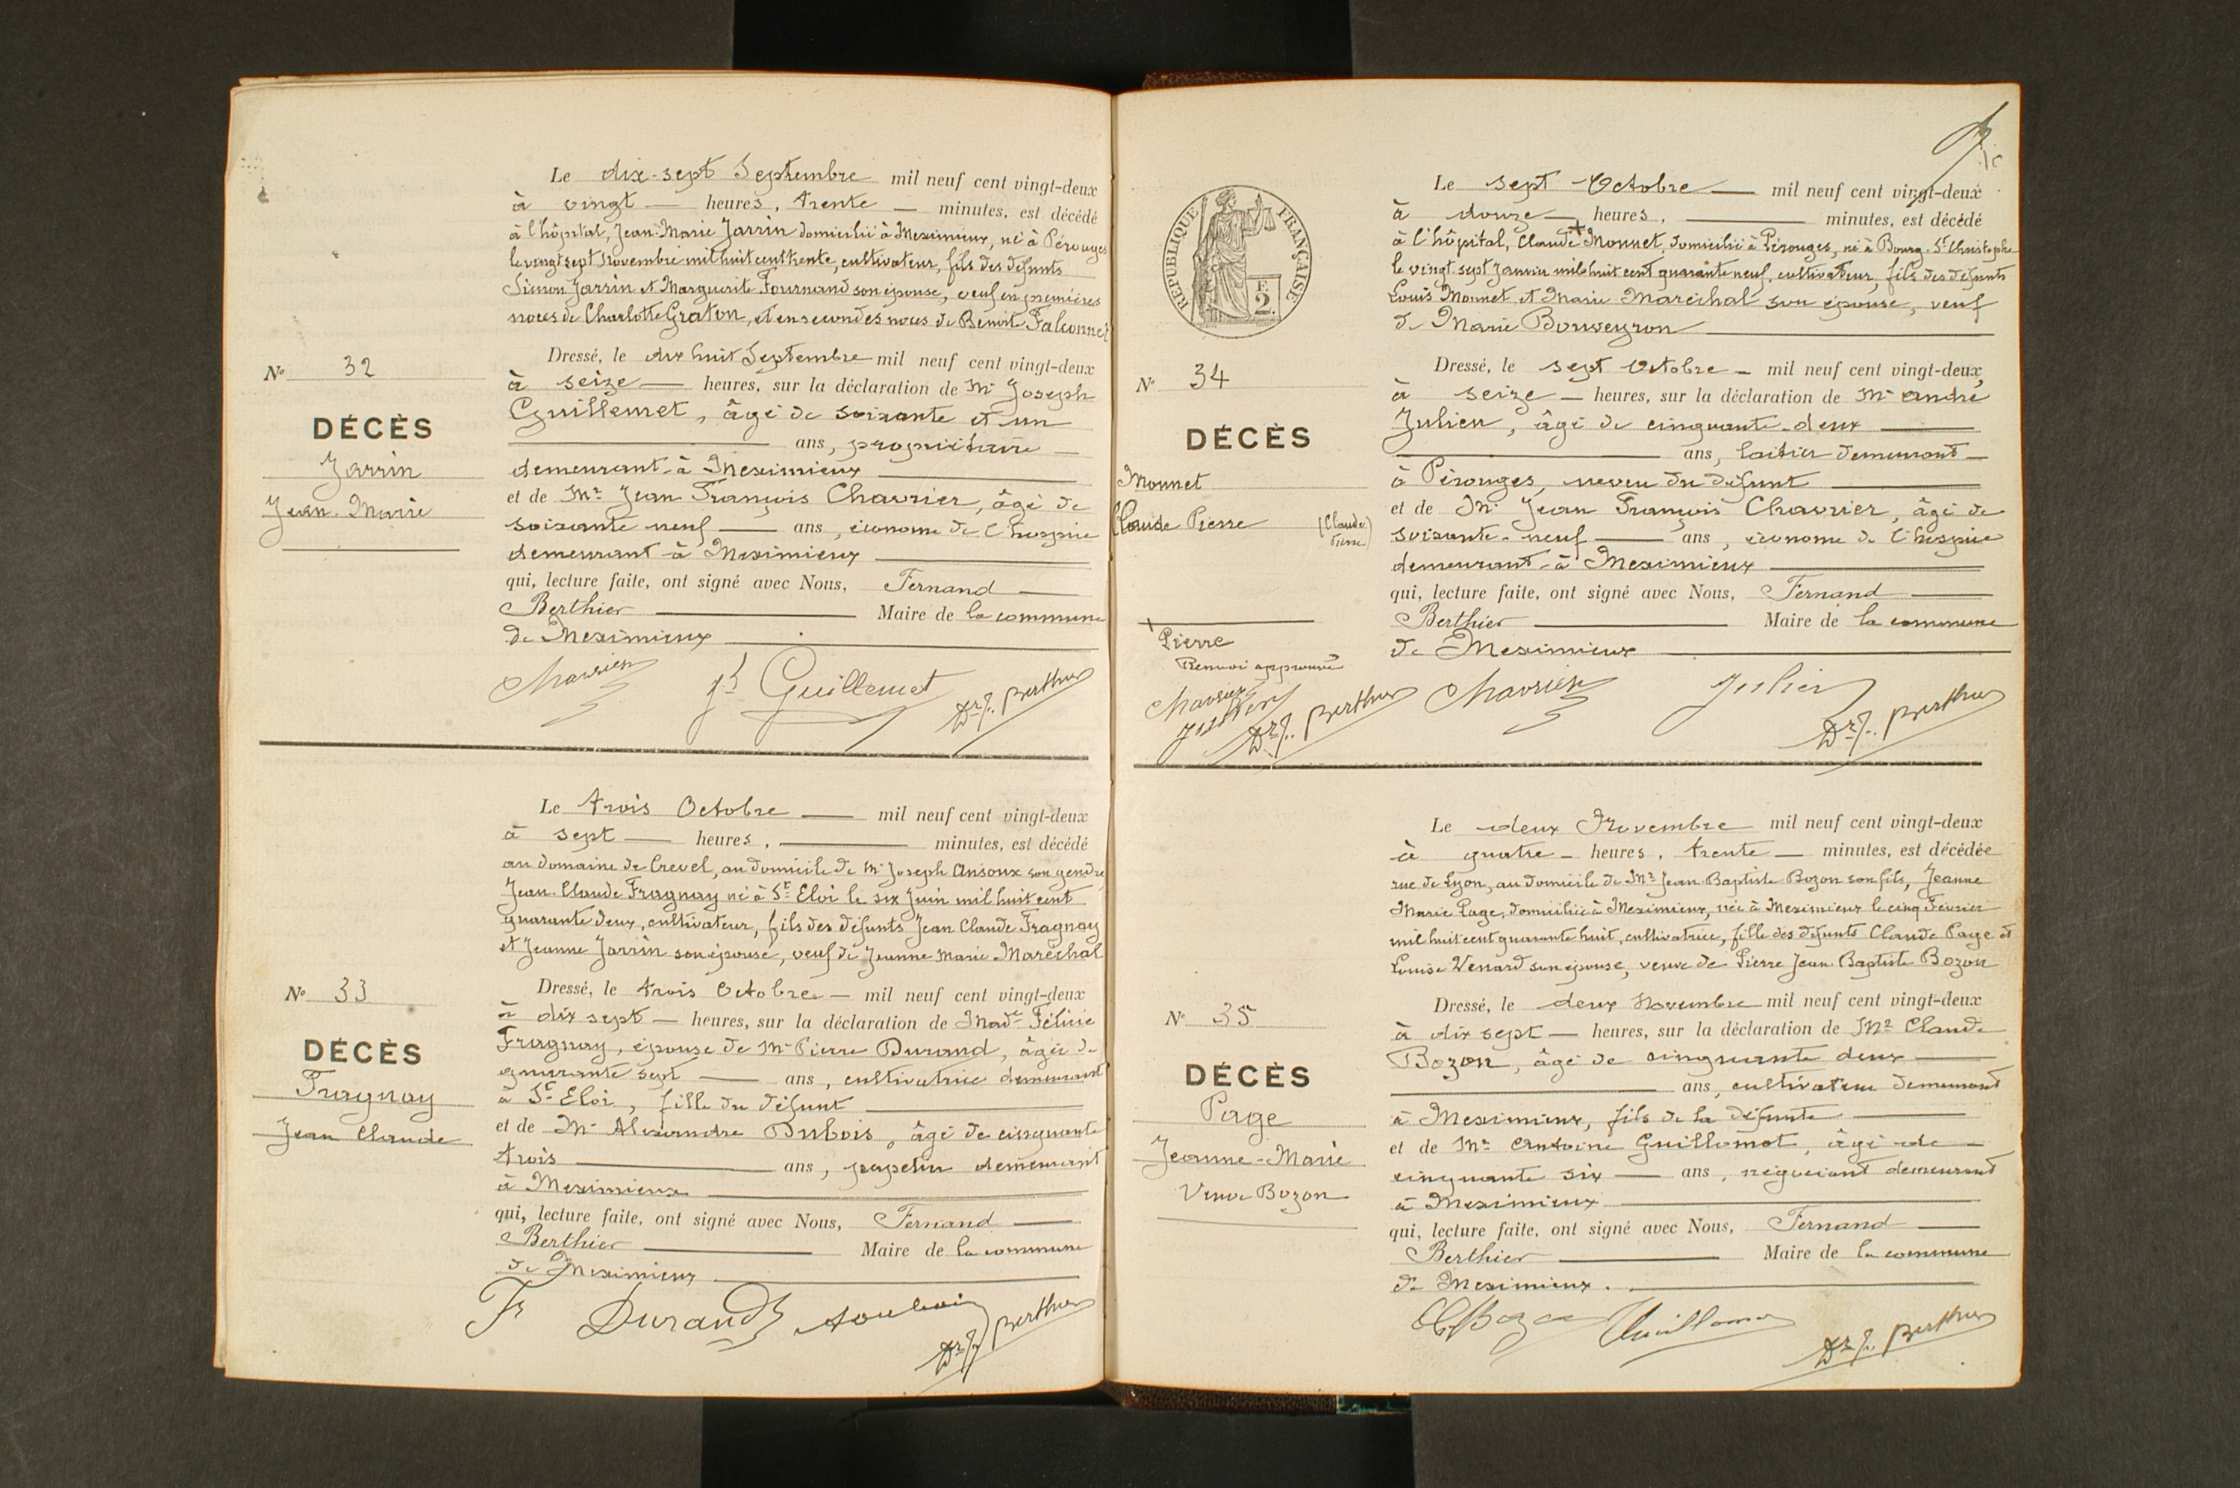 Le dix-sept Septembre mil neuf cent vingt-deux
à vingt heures, trente minutes, est décédé
à l'hôpital, Jean-Marie Jarrin domicilié à Meximieux, né à Pérouges
le vingt sept Novembre mil huit cent trente, cultivateur, fils des défunts
Simon Jarrin et Marguerite Fournand son épouse, veuf en premières
noces de Charlotte Graton, et en secondes noces de Benoite Falconnet
Dressé, le dix huit Septembre mil neuf cent vingt-deux
à seize heures, sur la déclaration de Mr Joseph
Guillemet, âgé de soixante et un
ans, propriétaire
demeurant à Meximieux
et de Mr Jean François Chavrier, âgé de
soixante neuf ans, économe de l'hospice
demeurant à Meximieux
qui, lecture faite, ont signé avec Nous, Fernand
Berthier Maire de la commune
de Meximieux
No 32
DÉCÈS
Jarrin
Jean-Marie
Chavrier Jh Guillemet Dr F. Berthier
Le trois Octobre mil neuf cent vingt-deux
à sept heures, minutes, est décédé
au domaine de Crevel, au domicile de Mr Joseph Ansoux son gendre,
Jean-Claude Fragnay né à St Eloi le six Juin mil huit cent
quarante deux, cultivateur, fils des défunts Jean Claude Fragnay
et Jeanne Jarrin son épouse, veuf de Jeanne Marie Maréchal
Dressé, le trois Octobre mil neuf cent vingt-deux
à dix sept heures, sur la déclaration de Made Félicie
Fragnay, épouse de Mr Pierre Durand, âgée de
quarante sept ans, cultivatrice demeurant
à St Eloi, fille du défunt
et de Mr Alexandre Dubois, âgé de cinquante
trois ans, papetier demeurant
à Meximieux
qui, lecture faite, ont signé avec Nous, Fernand
Berthier Maire de la commune
de Meximieux
No 33
DÉCÈS
Fragnay
Jean Claude
Fr Durand Dr F. Berthier
RÉPUBLIQUE FRANÇAISE
F.
2.
Le sept Octobre mil neuf cent vingt-deux
à douze heures, minutes, est décédé
à l'hôpital, Claude + Monnet, domicilié à Pérouges, né à Bourg-St Christophe
le vingt-sept Janvier mil huit cent quarante neuf, cultivateur, fils des défunts
Louis Monnet et Marie Maréchal son épouse, veuf
de Marie Bouveyron
Dressé, le sept Octobre mil neuf cent vingt-deux,
à seize heures, sur la déclaration de Mr André
Julien, âgé de cinquante-deux
ans, laitier demeurant
à Pérouges, neveu du défunt
et de Mr Jean François Chavrier, âgé de
soixante-neuf ans, économe de l'hospice
demeurant à Meximieux
qui, lecture faite, ont signé avec Nous, Fernand
Berthier Maire de la commune
de Meximieux
No 34
DÉCÈS
Monnet
Claude Pierre (Claude Pierre)
+ Pierre
Renvoi approuvé
Chavrier
Julien Dr F. Berthier
Chavrier Julien Dr F. Berthier
Le deux Novembre mil neuf cent vingt-deux
à quatre heures, trente minutes, est décédée
rue de Lyon, au domicile de Mr Jean-Baptiste Bozon son fils, Jeanne
Marie Page, domiciliée à Meximieux, née à Meximieux le cinq Février
mil huit cent quarante huit, cultivatrice, fille des défunts Claude Page et
Louise Venard son épouse, veuve de Pierre Jean-Baptiste Bozon
Dressé, le deux Novembre mil neuf cent vingt-deux
à dix sept heures, sur la déclaration de Mr Claude
Bozon, âgé de cinquante deux
ans, cultivateur demeurant
à Meximieux, fils de la défunte
et de Mr Antoine Guillomot, âgé de
cinquante six ans, négociant demeurant
à Meximieux
qui, lecture faite, ont signé avec Nous, Fernand
Berthier Maire de la commune
de Meximieux.
No 35
DÉCÈS
Page
Jeanne-Marie
Veuve Bozon
Cl Bozon Guillomot Dr F. Berthier